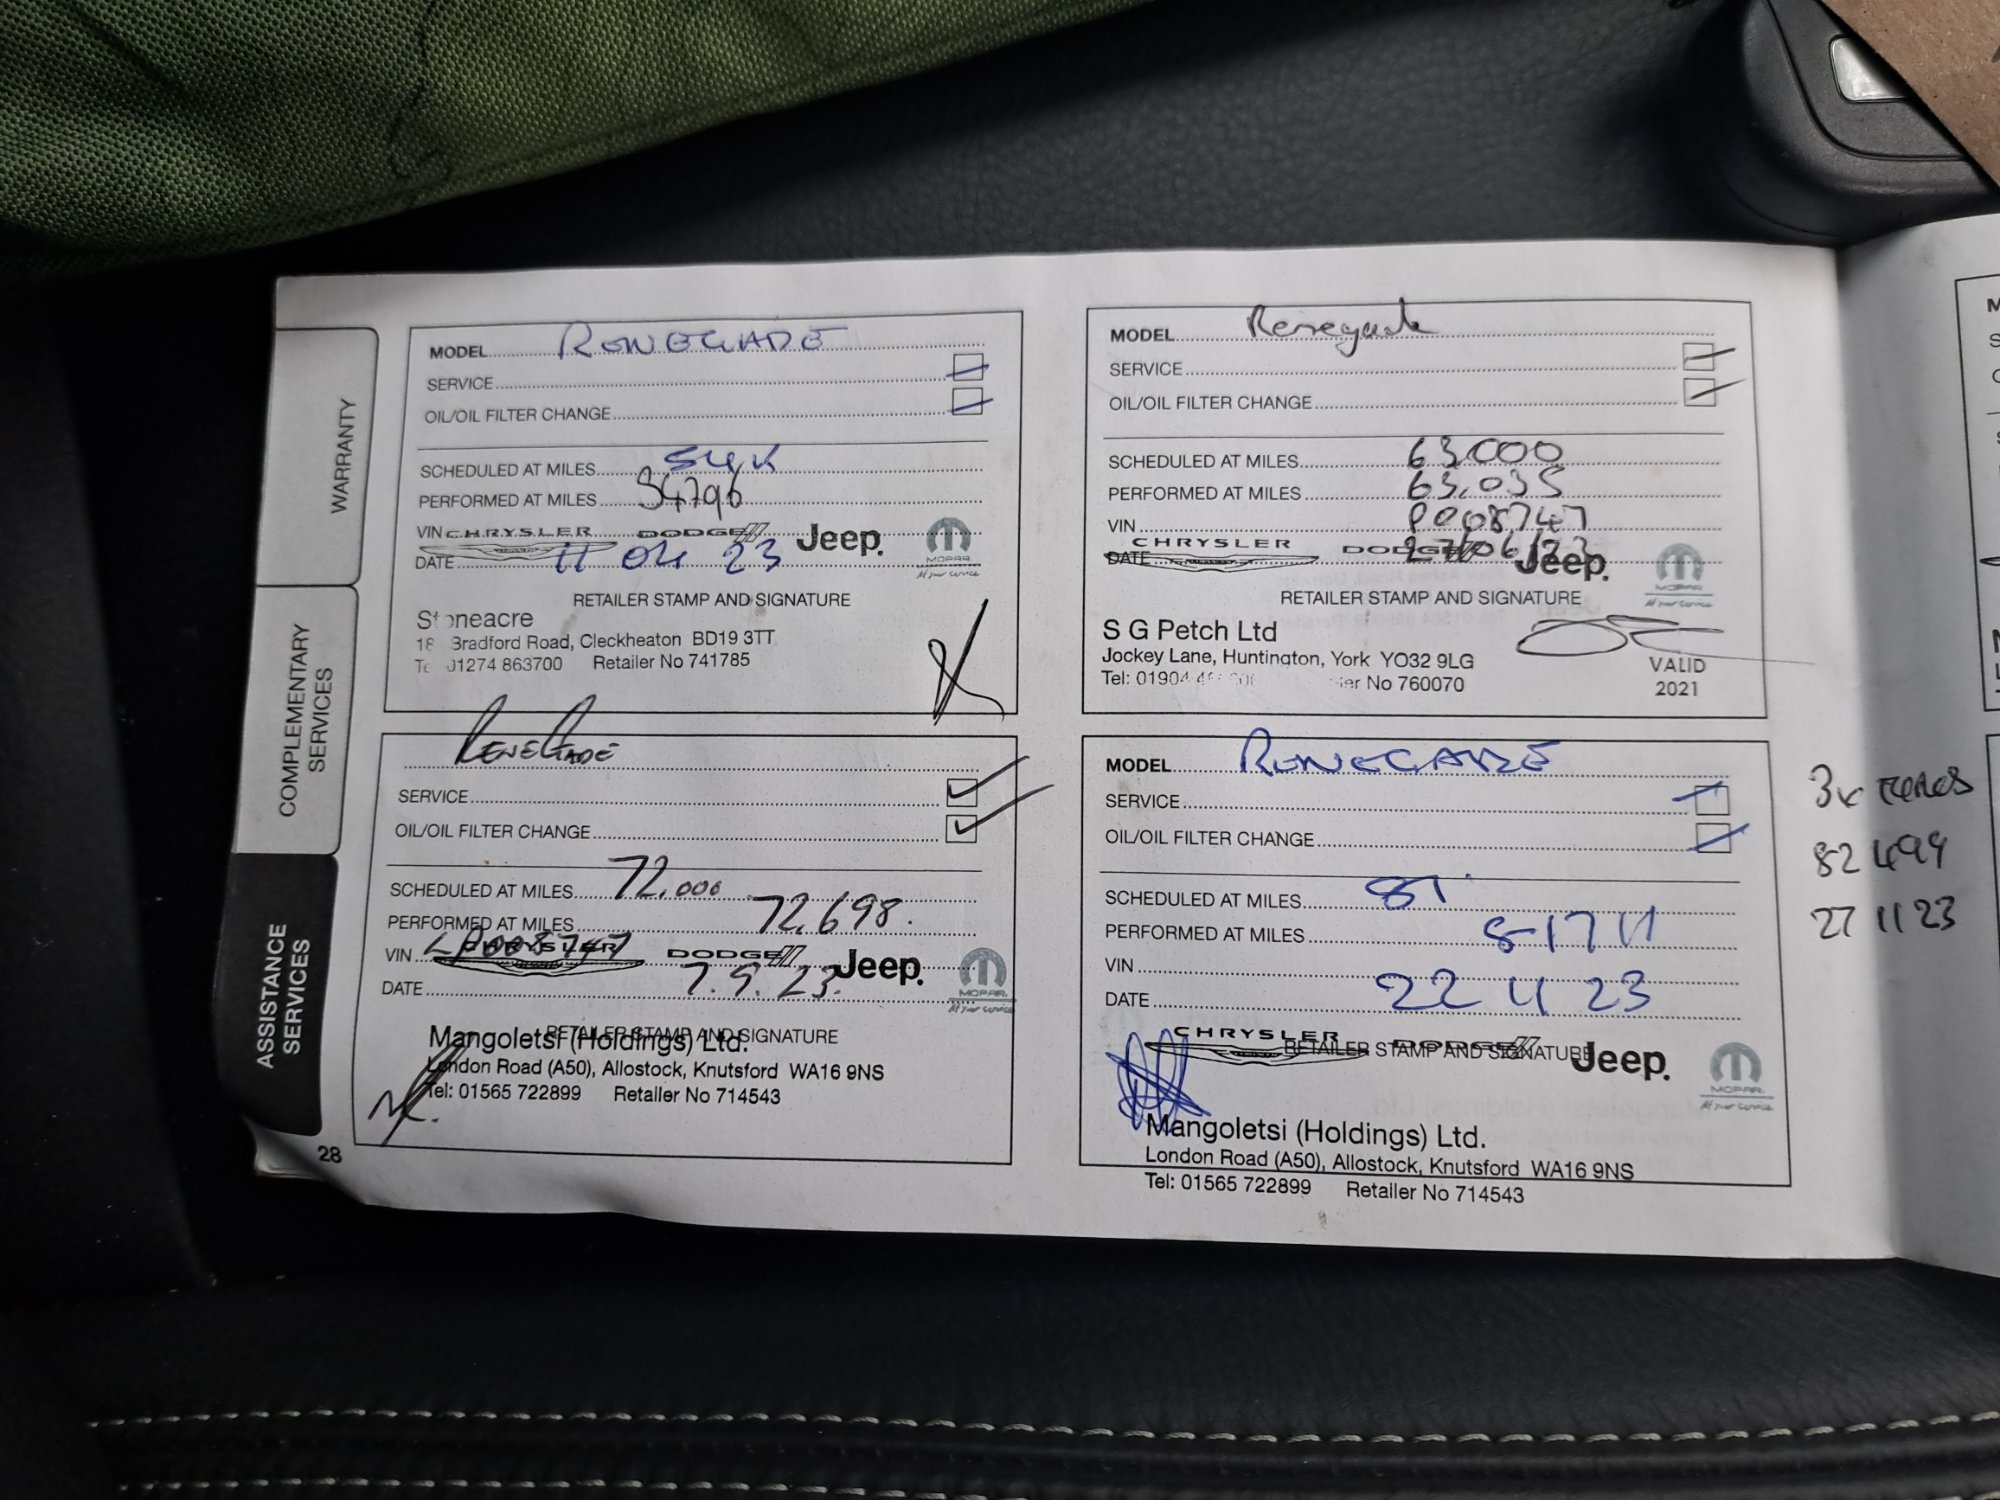 WARRANTY
COMPLEMENTARY
SERVICES
ASSISTANCE
SERVICES
28
MODEL RENEGADE
SERVICE
OIL/OIL FILTER CHANGE
SCHEDULED AT MILES 54K
PERFORMED AT MILES 54796
VIN
CHRYSLER DODGE Jeep.
MOPAR
DATE 11 04 23
RETAILER STAMP AND SIGNATURE
Stoneacre
Bradford Road, Cleckheaton BD19 3TT
01274 863700 Retailer No 741785
MODEL Renegade
SERVICE
OIL/OIL FILTER CHANGE
SCHEDULED AT MILES 63.000
PERFORMED AT MILES 63,035
VIN P008747
CHRYSLER DODGE Jeep.
MOPAR
DATE 27/06/23
RETAILER STAMP AND SIGNATURE
S G Petch Ltd
Jockey Lane, Huntington, York YO32 9LG
Tel: 01904 No 760070
VALID
2021
RENEGADE
SERVICE
OIL/OIL FILTER CHANGE
SCHEDULED AT MILES 72.000
PERFORMED AT MILES 72,698.
VIN LP008747
CHRYSLER DODGE Jeep.
MOPAR
DATE 7.9.23.
RETAILER STAMP AND SIGNATURE
Mangoletsi (Holdings) Ltd.
London Road (A50), Allostock, Knutsford WA16 9NS
Tel: 01565 722899 Retailer No 714543
MODEL RENEGADE
SERVICE
OIL/OIL FILTER CHANGE
SCHEDULED AT MILES 81
PERFORMED AT MILES 81711
VIN
DATE 22 11 23
CHRYSLER DODGE Jeep.
MOPAR
RETAILER STAMP AND SIGNATURE
Mangoletsi (Holdings) Ltd.
London Road (A50), Allostock, Knutsford WA16 9NS
Tel: 01565 722899 Retailer No 714543
82499
27 11 23